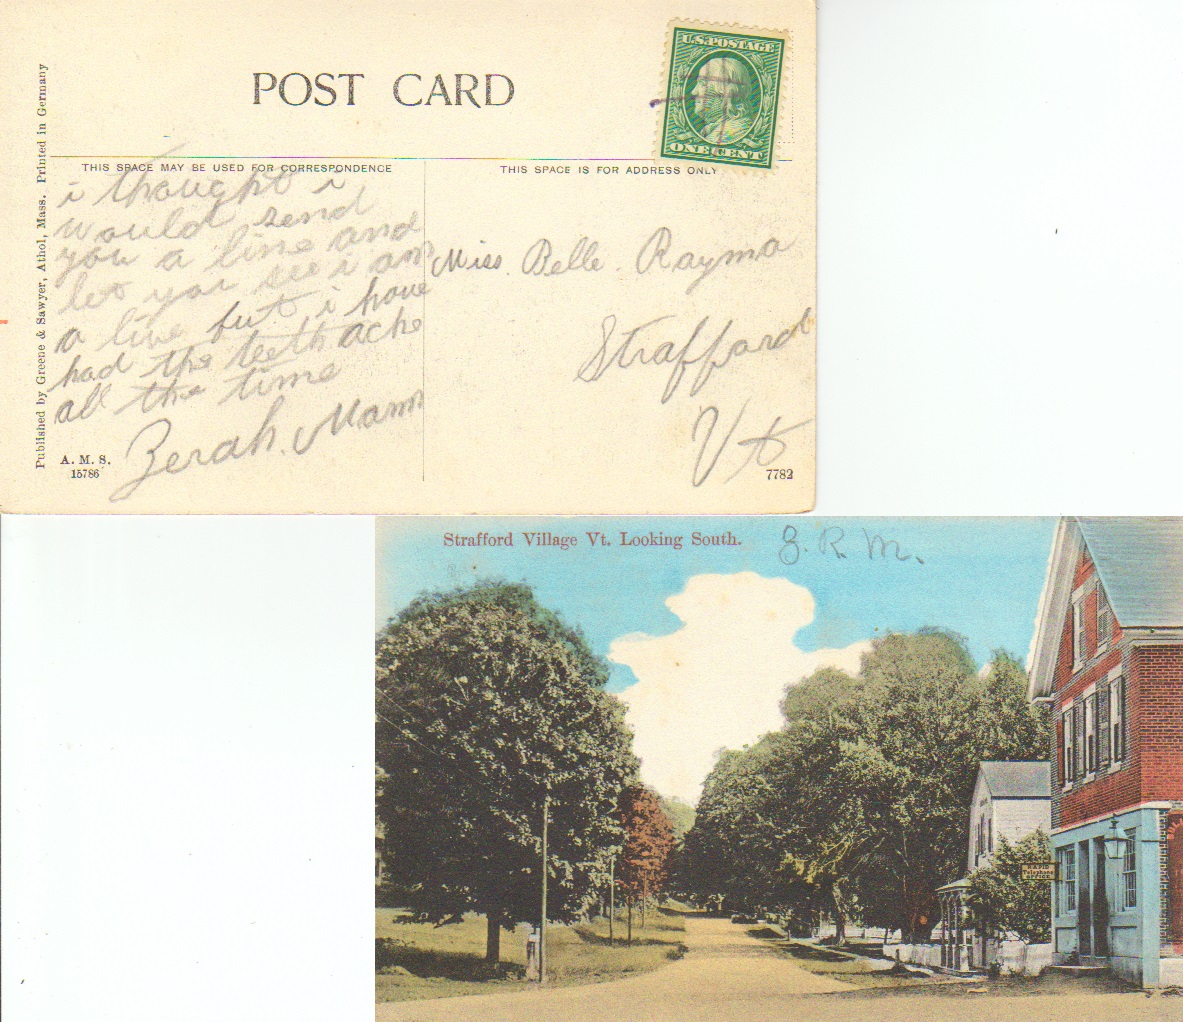 POST CARD
U.S.POSTAGE
ONE CENT
THIS SPACE MAY BE USED FOR CORRESPONDENCE
THIS SPACE IS FOR ADDRESS ONLY
Published by Greene & Sawyer, Athol, Mass. Printed in Germany
i thought i
would send
you a line and
let you see i am
a live but i have
had the teeth ache
all the time
Zerah. Mann
Miss. Belle. Raymo
Strafford
Vt
A. M. S.
15786
7782
Strafford Village Vt. Looking South.
Z. R. M.
RAPID
Telephone
OFFICE